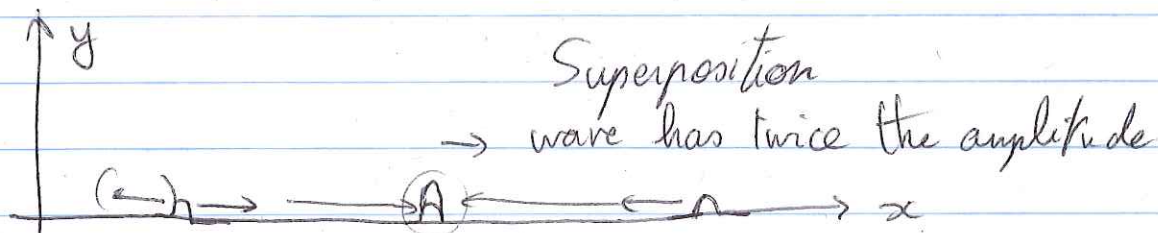 y
Superposition
→ wave has twice the amplitude
x